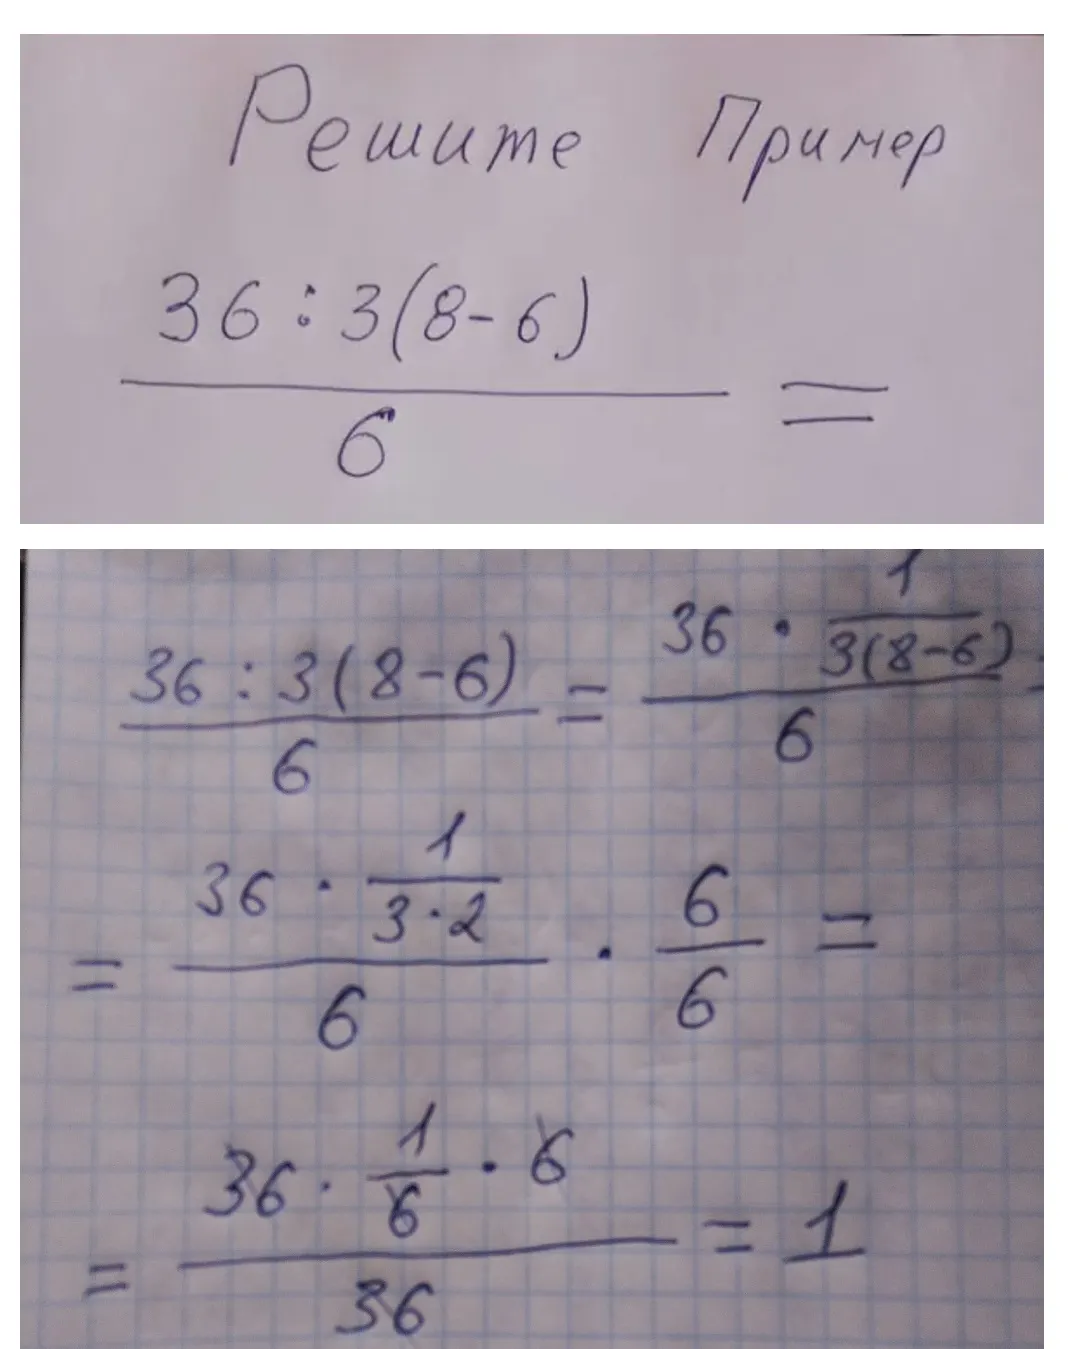 Решите Пример
36 : 3(8-6)
6
=
36 : 3(8-6) / 6 = 36 · 1/3(8-6) / 6 =
= 36 · 1/3·2 / 6 · 6/6 =
= 36 · 1/6 · 6 / 36 = 1